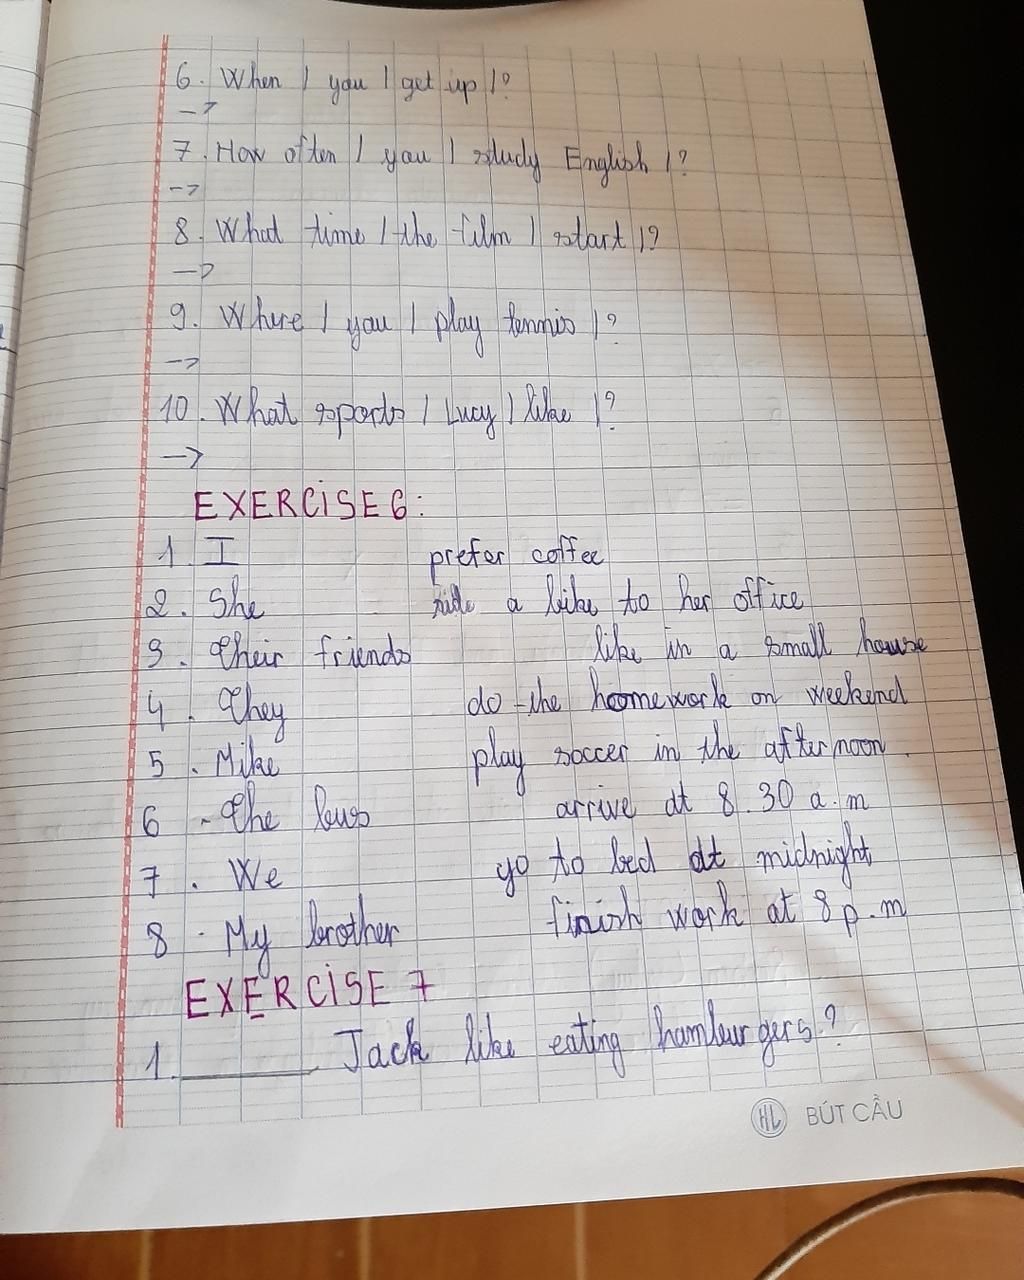 6. When / you / get up / ?
->
7. How often / you / study English / ?
->
8. What time / the film / start / ?
->
9. Where / you / play tennis / ?
->
10. What sports / Lucy / like / ?
->
EXERCISE 6:
1 I prefer coffee
2. She ride a bike to her office
3. Their friends like in a small house
4. They do the homework on weekend
5. Mike play soccer in the afternoon.
6. The bus arrive at 8.30 a.m
7. We go to bed at midnight
8. My brother finish work at 8 p.m
EXERCISE 7
1. ________ Jack like eating hamburgers?
HL BÚT CẦU